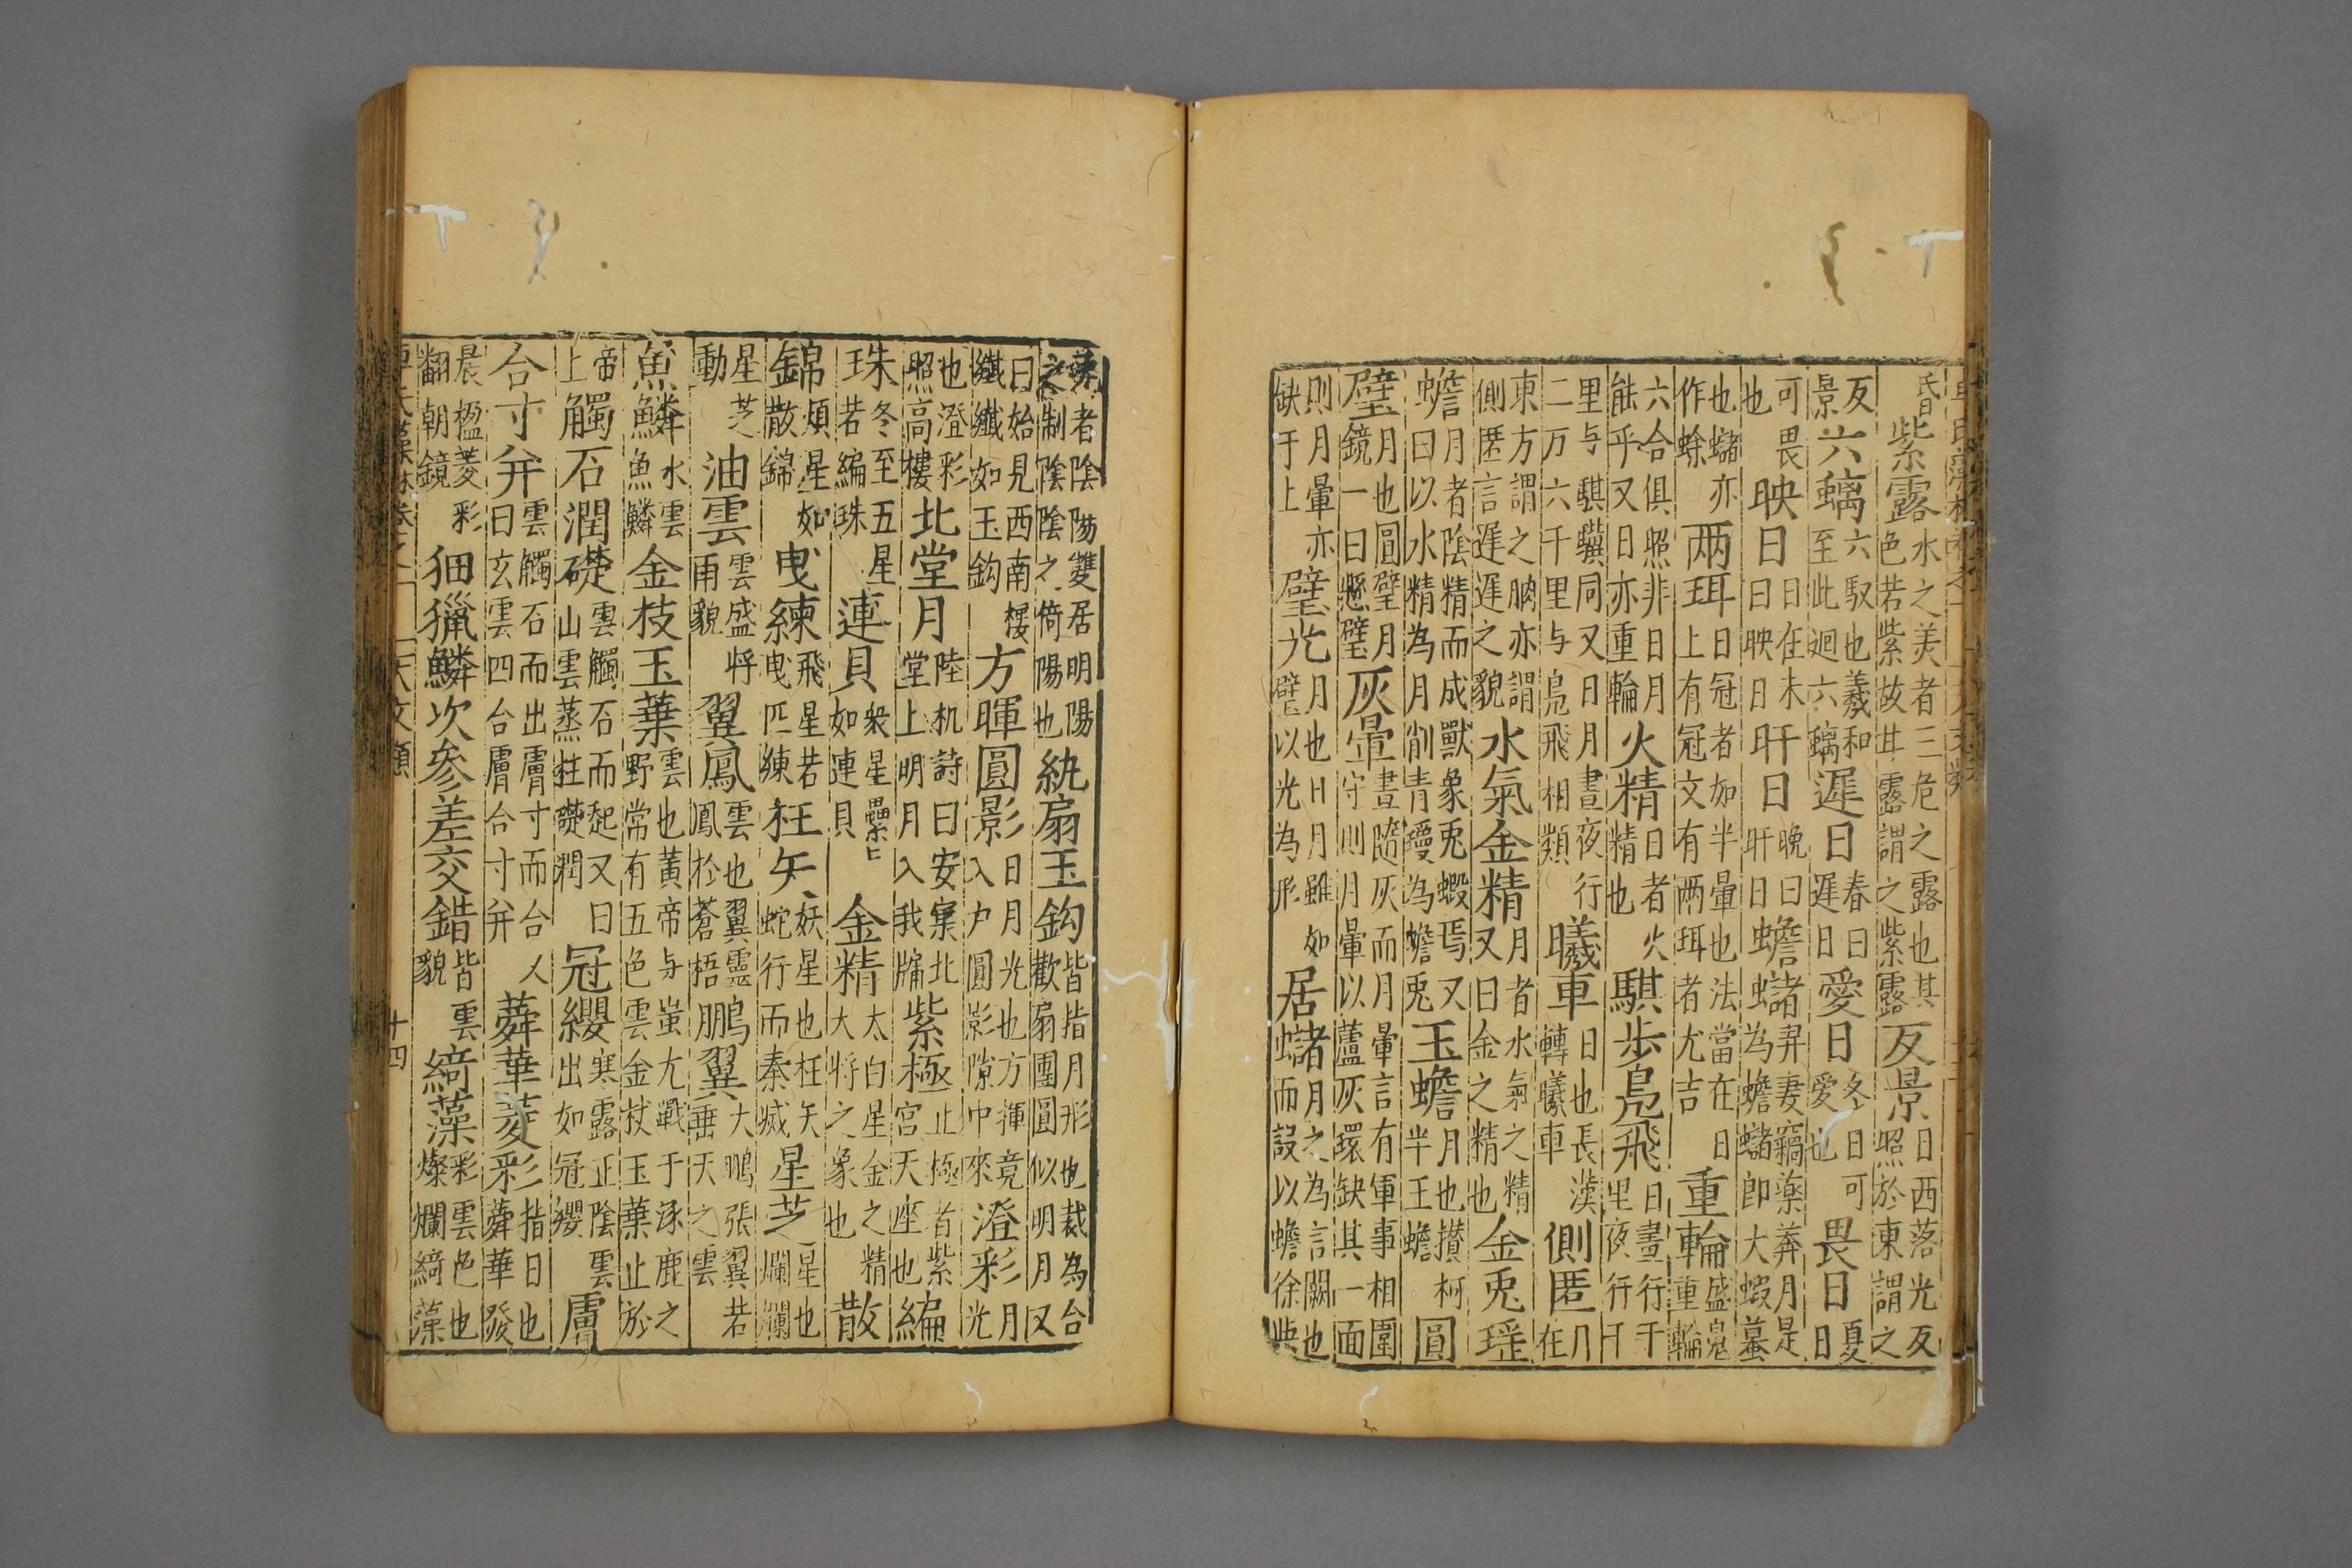 氏曰紫露水之美者三危之露也其色若紫故甘露謂之紫露反景日西落光反照於東謂之
反景六螭六馭也羲和至此廻六螭遲日春曰遲日愛日冬日可愛也畏日夏日
可畏也映日日在未曰映日旰日晚曰旰日蟾蠩羿妻竊藥奔月是為蟾蠩即大蝦蟇
也蠩亦作蜍两珥日冠者如半暈也法當在日上有冠文有两珥者尤吉重輪盛鳬重輪
六合俱照非日月能乎又日亦重輪火精日者火精也騏步鳬飛日晝行千里夜行千
里与騏驥同又日月晝夜行二万六千里与鳬飛相類曦車日也長漢轉曦車側匿月在
東方謂之朒亦謂側匿言遲遲之貌水氣金精月者水氣之精又曰金之精也金兎瑶
蟾月者陰精而成獸象兎蝦焉又曰以水精為月削青瓊為蟾兎玉蟾月也攢柯半玉蟾圓
璧月也圓璧月鏡一曰懸璧灰暈晝隨灰而月暈言有軍事相圍守則月暈以蘆灰環缺其一面
則月暈亦缺于上璧光月也日月雖如璧以光為形居蠩月之為言闕也而設以蟾徐與
者陰陽雙居明陽之制陰陰之倚陽也紈扇玉鈎皆指月形也裁為合歡扇團圓似明月又
曰始見西南樓纖纖如玉鈎方暉圓影日月光也方揮竟入户圓影隙中來澄彩月光
也澄彩照高樓北堂月陸机詩曰安寢北堂上明月入我牖紫極止極首紫宫天座也編
珠冬至五星若編珠連貝衆星纍々如連貝金精太白星金之精大将之象也散
錦煩星如散錦曳練飛星若曳匹練枉矢妖星也枉矢蛇行而秦滅星芝星也爛爛
星芝動油雲雲盛将雨貌翼鳳雲也翼靈鳳於蒼梧鵬翼大鵬張翼若垂天之雲
魚鱗水雲魚鱗金枝玉葉雲也黃帝与蚩尤戰于涿鹿之野常有五色雲金枝玉葉止於
帝上觸石潤礎雲觸石而起又曰山雲蒸柱礎潤冠纓寒露正陰雲出如冠纓膚
合寸弁雲觸石而出膚寸而合人曰玄雲四合膚合寸弁蕣華菱彩指日也蕣華發
晨楹菱彩翻朝鏡鱗次參差交錯皆雲貌綺藻彩雲色也燦爛綺藻
十四